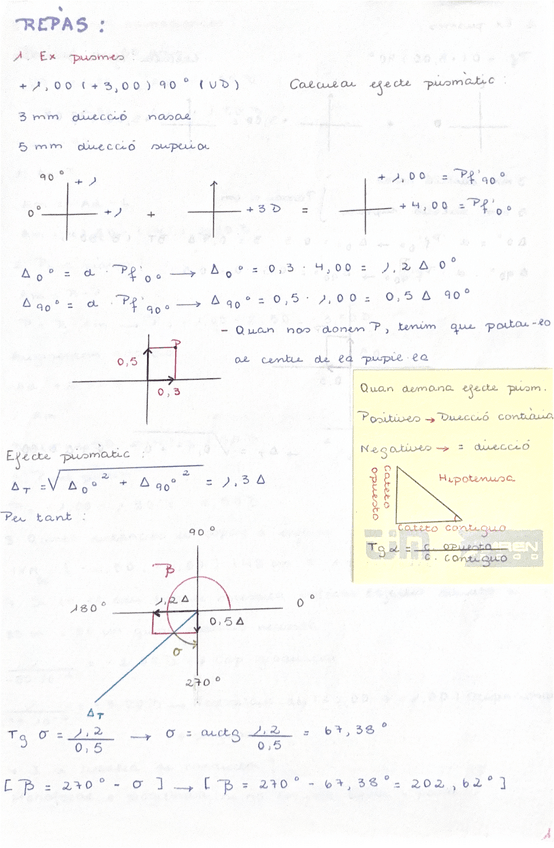 REPÀS:
1. Ex prismes:
+1,00 (+3,00) 90° (UD) Calcular efecte prismàtic:
3 mm direcció nasal
5 mm direcció superior
90° +1
0° +1 + +3D = +1,00 = Pf'90°
+4,00 = Pf'0°
Δ0° = d · Pf'0° → Δ0° = 0,3 · 4,00 = 1,2 Δ 0°
Δ90° = d · Pf'90° → Δ90° = 0,5 · 1,00 = 0,5 Δ 90°
- Quan nos donen P, tenim que portar-lo
al centre de la pupil·la
P
0,5
0,3
Quan demana efecte prism.
Positives → Direcció contrària
Negatives → = direcció
Cateto opuesto
Hipotenusa
Cateto contiguo
Tg α = c. opuesto / c. contiguo
Efecte prismatic:
ΔT = √Δ0°² + Δ90°² = 1,3 Δ
Per tant:
90°
β
180° 1,2 Δ 0°
0,5 Δ
σ
270°
ΔT
Tg σ = 1,2 / 0,5 → σ = arctg 1,2 / 0,5 = 67,38°
[β = 270° - σ] → [β = 270° - 67,38° = 202,62°]
1